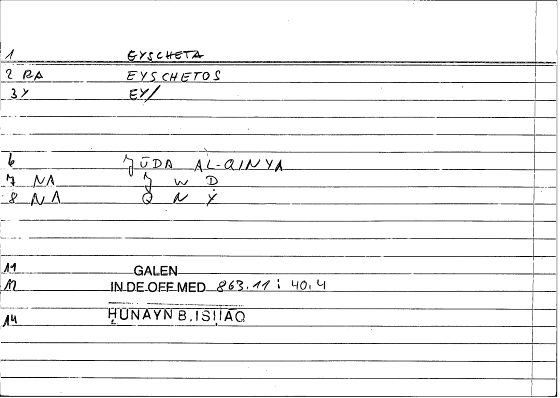 1 EYSCHETA
2 RA EYSCHETOS
3 Y EY/
6 ǦŪDA AL-QINYA
7 NA Ǧ W D
8 NA Q N Y
11 GALEN
12 IN DE OFF MED 863.11 : 40,4
14 ḤUNAYN B. ISḤAQ